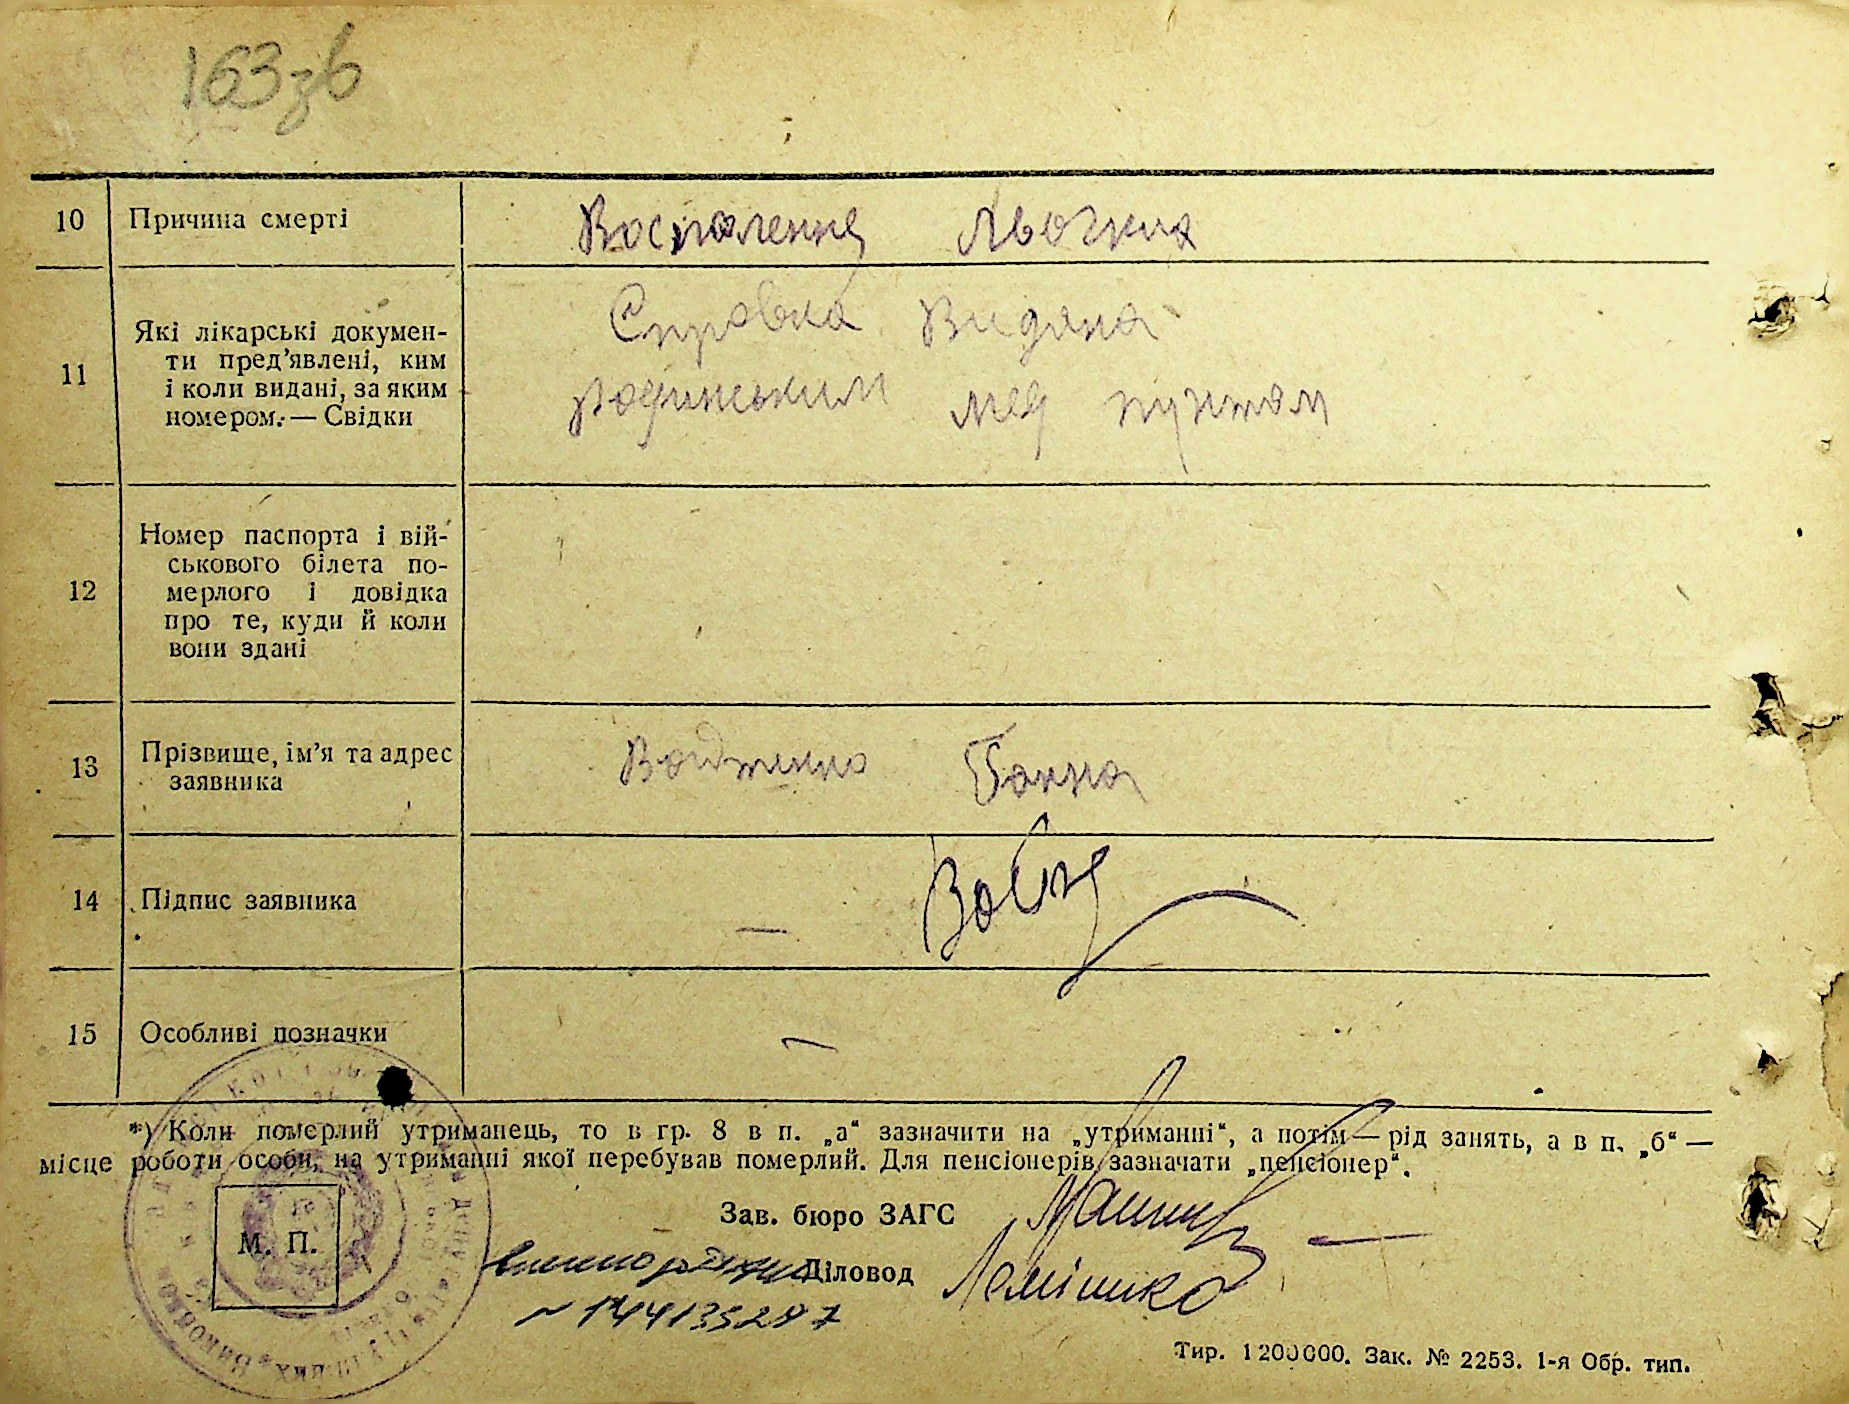 163зв
10 Причина смерті Воспаление Льогких
11 Які лікарські докумен-
ти пред'явлені, ким
і коли видані, за яким
номером.— Свідки
Справка Видана
мед пунктом
12 Номер паспорта і вій-
ськового білета по-
мерлого і довідка
про те, куди й коли
вони здані
13 Прізвище, ім'я та адрес
заявника
Ганна
14 Підпис заявника —
15 Особливі позначки —
*) Коли померлий утриманець, то в гр. 8 в п. „а“ зазначити на „утриманні“, а потім — рід занять, а в п. „б“ —
місце роботи особи, на утриманні якої перебував померлий. Для пенсіонерів зазначати „пенсіонер“.
Зав. бюро ЗАГС
М. П.
Діловод
Тир. 1200000. Зак. № 2253. 1-я Обр. тип.